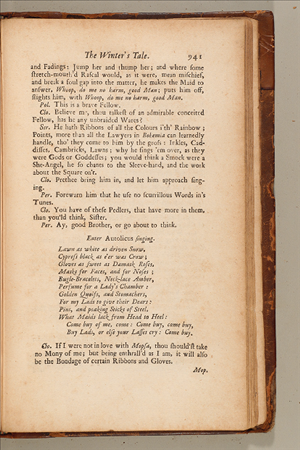 The Winter's Tale. 941
and Fadings: Jump her and thump her; and where some
stretch-mouth'd Rascal would, as it were, mean mischief,
and break a foul gap into the matter, he makes the Maid to
answer, Whoop, do me no harm, good Man; puts him off,
slights him, with Whoop, do me no harm, good Man.
Pol. This is a brave Fellow.
Clo. Believe me, thou talkest of an admirable conceited
Fellow, has he any unbraided Wares?
Ser. He hath Ribbons of all the Colours i'th' Rainbow;
Points, more than all the Lawyers in Bohemia can learnedly
handle, tho' they come to him by the gross: Inkles, Cad-
disses, Cambricks, Lawns; why he sings 'em over, as they
were Gods or Goddesses; you would think a Smock were a
She-Angel, he so chants to the Sleeve-hand, and the work
about the Square on't.
Clo. Prethee bring him in, and let him approach sing-
ing.
Per. Forewarn him that he use no scurrillous Words in's
Tunes.
Clo. You have of these Pedlers, that have more in them,
than you'ld think, Sister.
Per. Ay, good Brother, or go about to think.
Enter Autolicus singing.
Lawn as white as driven Snow,
Cypress black as e'er was Crow;
Gloves as sweet as Damask Roses,
Masks for Faces, and for Noses;
Bugle-Bracelets, Neck-lace Amber,
Perfume for a Lady's Chamber:
Golden Quoifs, and Stomachers,
For my Lads to give their Dears:
Pins, and poaking Sticks of Steel,
What Maids lack from Head to Heel:
Come buy of me, come: Come buy, come buy,
Buy Lads, or else your Lasses cry: Come buy.
Clo. If I were not in love with Mopsa, thou should'st take
no Mony of me; but being enthrall'd as I am, it will also
be the Bondage of certain Ribbons and Gloves.
Mop.